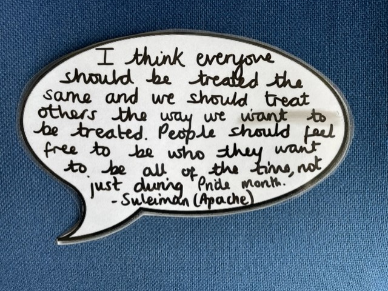 I think everyone
should be treated the
same and we should treat
others the way we want to
be treated. People should feel
free to be who they want
to be all of the time, not
just during Pride month.
- Suleiman (Apache)